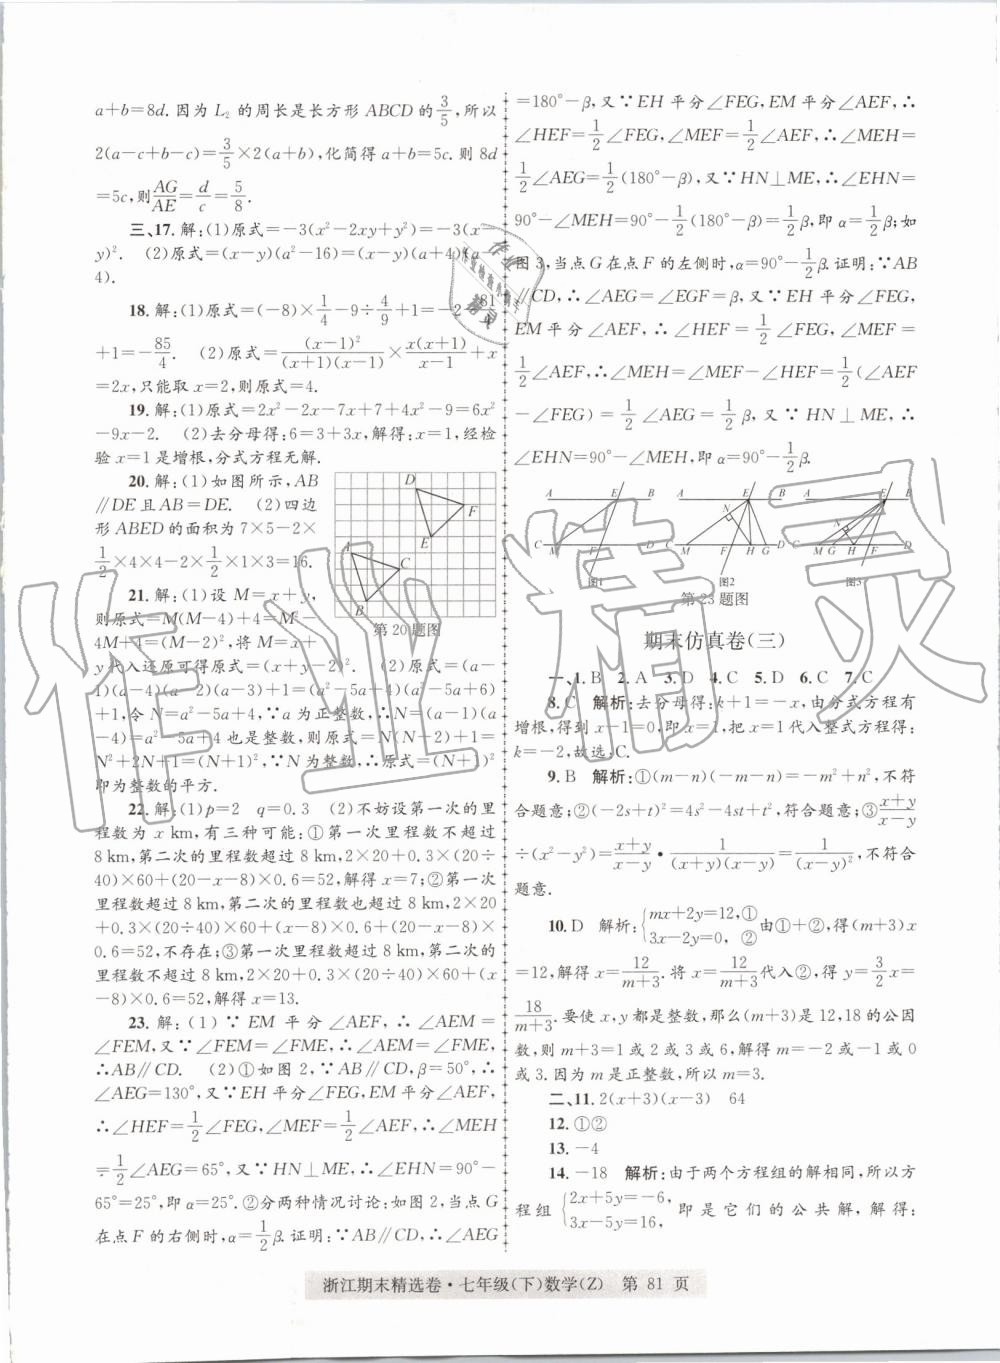 a+b=8d.因为 L₂ 的周长是长方形 ABCD 的3/5,所以
2(a-c+b-c)=3/5×2(a+b),化简得 a+b=5c.则 8d
=5c,则AG/AE=d/c=5/8.
三、17.解:(1)原式=-3(x²-2xy+y²)=-3(x-
y)². (2)原式=(x-y)(a²-16)=(x-y)(a+4)(a-
4).
18.解:(1)原式=(-8)×1/4-9÷4/9+1=-2-81/4
+1=-85/4. (2)原式=(x-1)²/(x+1)(x-1)×x(x+1)/x-1+x=
=2x,只能取 x=2,则原式=4.
19.解:(1)原式=2x²-2x-7x+7+4x²-9=6x²
-9x-2. (2)去分母得:6=3+3x,解得:x=1,经检
验 x=1 是增根,分式方程无解.
20.解:(1)如图所示,AB
∥DE 且 AB=DE. (2)四边
形 ABED 的面积为 7×5-2×
1/2×4×4-2×1/2×1×3=16.
D
F
E
A
C
B
第 20 题图
21.解:(1)设 M=x+y,
则原式=M(M-4)+4=M²-
4M+4=(M-2)²,将 M=x+
y代入还原可得原式=(x+y-2)². (2)原式=(a-
1)(a-4)(a-2)(a-3)+1=(a²-5a+4)(a²-5a+6)
+1,令 N=a²-5a+4,∵a 为正整数,∴N=(a-1)(a
-4)=a²-5a+4 也是整数,则原式=N(N+2)+1=
N²+2N+1=(N+1)²,∵N 为整数,∴原式=(N+1)²
即为整数的平方.
22.解:(1)p=2 q=0.3 (2)不妨设第一次的里
程数为 x km,有三种可能:①第一次里程数不超过
8 km,第二次的里程数超过 8 km,2×20+0.3×(20÷
40)×60+(20-x-8)×0.6=52,解得 x=7;②第一次
里程数超过 8 km,第二次的里程数也超过 8 km,2×20
+0.3×(20÷40)×60+(x-8)×0.6+(20-x-8)×
0.6=52,不存在;③第一次里程数超过 8 km,第二次的
里程数不超过 8 km,2×20+0.3×(20÷40)×60+(x
-8)×0.6=52,解得 x=13.
23.解:(1)∵EM 平分∠AEF,∴∠AEM=
∠FEM,又∵∠FEM=∠FME,∴∠AEM=∠FME,
∴AB∥CD. (2)①如图 2,∵AB∥CD,β=50°,∴
∠AEG=130°,又∵EH 平分∠FEG,EM 平分∠AEF,
∴∠HEF=1/2∠FEG,∠MEF=1/2∠AEF,∴∠MEH
=1/2∠AEG=65°,又∵HN⊥ME,∴∠EHN=90°-
65°=25°,即 α=25°.②分两种情况讨论:如图 2,当点 G
在点 F 的右侧时,α=1/2β.证明:∵AB∥CD,∴∠AEG
=180°-β,又∵EH 平分∠FEG,EM 平分∠AEF,∴
∠HEF=1/2∠FEG,∠MEF=1/2∠AEF,∴∠MEH=
1/2∠AEG=1/2(180°-β),又∵HN⊥ME,∴∠EHN=
90°-∠MEH=90°-1/2(180°-β)=1/2β,即 α=1/2β;如
图 3,当点 G 在点 F 的左侧时,α=90°-1/2β.证明:∵AB
∥CD,∴∠AEG=∠EGF=β,又∵EH 平分∠FEG,
EM 平分∠AEF,∴∠HEF=1/2∠FEG,∠MEF=
1/2∠AEF,∴∠MEH=∠MEF-∠HEF=1/2(∠AEF
-∠FEG)=1/2∠AEG=1/2β,又∵HN⊥ME,∴
∠EHN=90°-∠MEH,即 α=90°-1/2β.
A E B
C M F D
图1
A E B
N
M F H G D
图2
A E B
N
C M G H F D
图3
第 23 题图
期末仿真卷(三)
一、1.B 2.A 3.D 4.C 5.D 6.C 7.C
8.C 解析:去分母得:k+1=-x,由分式方程有
增根,得到 x-1=0,即 x=1,把 x=1 代入整式方程得:
k=-2,故选:C.
9.B 解析:①(m-n)(-m-n)=-m²+n²,不符
合题意;②(-2s+t)²=4s²-4st+t²,符合题意;③x+y/x-y
÷(x²-y²)=x+y/x-y·1/(x+y)(x-y)=1/(x-y)²,不符合
题意.
10.D 解析:{mx+2y=12,① 3x-2y=0, ②由①+②,得(m+3)x
=12,解得 x=12/m+3.将 x=12/m+3代入②,得 y=3/2x=
18/m+3.要使 x,y 都是整数,那么(m+3)是 12,18 的公因
数,则 m+3=1 或 2 或 3 或 6,解得 m=-2 或-1 或 0
或 3.因为 m 是正整数,所以 m=3.
二、11.2(x+3)(x-3) 64
12.①②
13.-4
14.-18 解析:由于两个方程组的解相同,所以方
程组{2x+5y=-6, 3x-5y=16,即是它们的公共解,解得:
浙江期末精选卷·七年级(下)数学(Z) 第 81 页
作业精灵